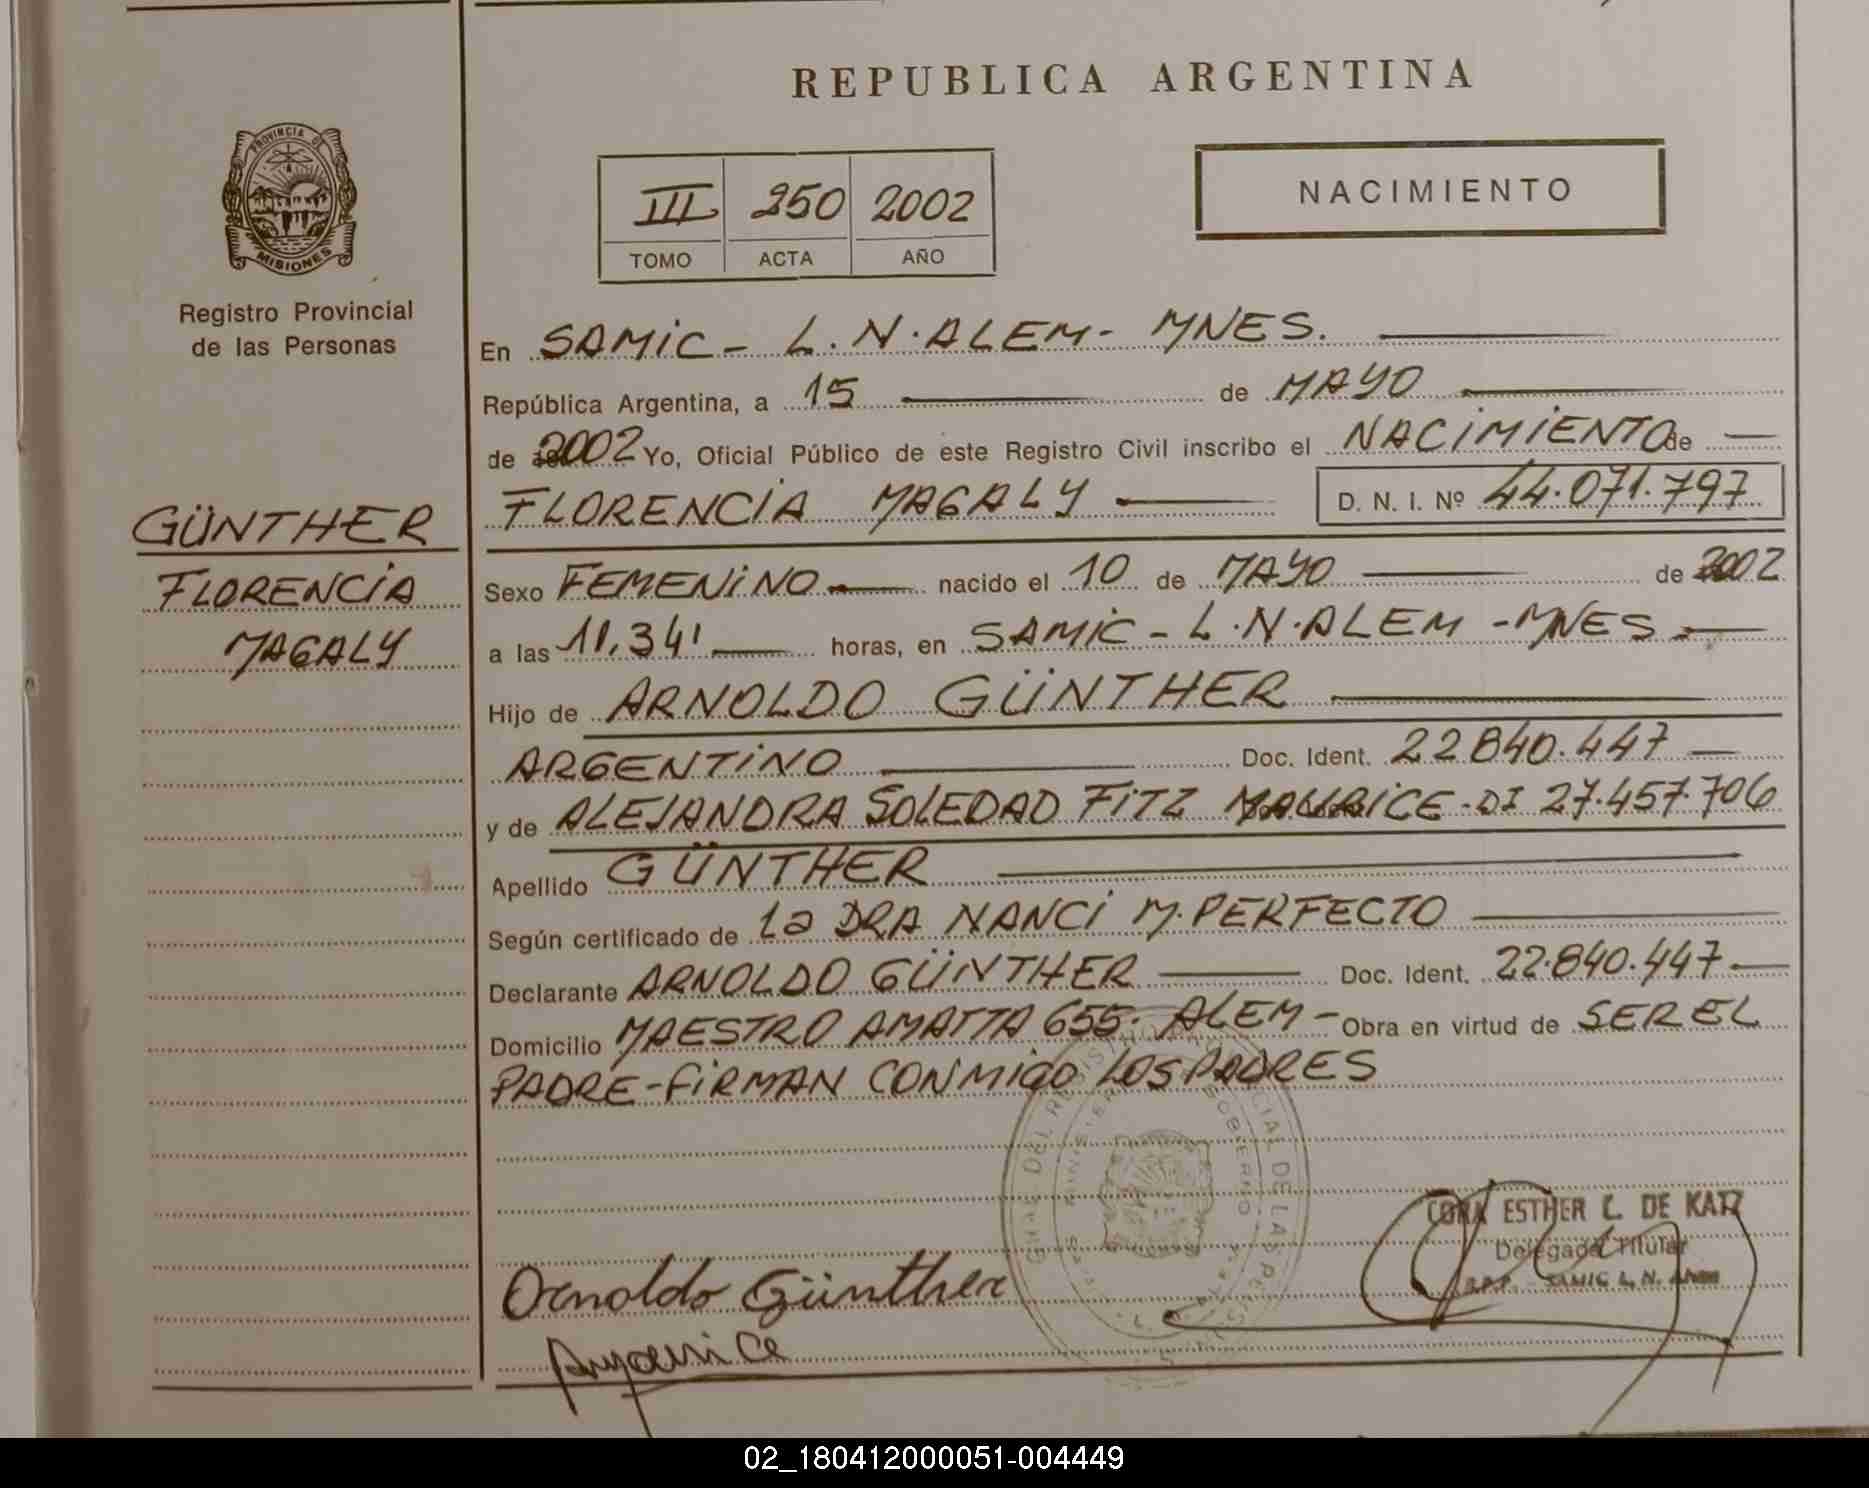 REPUBLICA ARGENTINA
PROVINCIA DE
MISIONES
Registro Provincial
de las Personas
III 250 2002
TOMO ACTA AÑO
NACIMIENTO
GÜNTHER
FLORENCIA
MAGALY
En SAMIC - L. N. ALEM - MNES.
República Argentina, a 15 de MAYO
de 2002 Yo, Oficial Público de este Registro Civil inscribo el NACIMIENTO de
FLORENCIA MAGALY D. N. I. Nº 44.071.797
Sexo FEMENINO nacido el 10 de MAYO de 2002
a las 11,34' horas, en SAMIC - L.N.ALEM - MNES
Hijo de ARNOLDO GÜNTHER
ARGENTINO Doc. Ident. 22.840.447
y de ALEJANDRA SOLEDAD FITZ MAURICE - DI 27.457.706
Apellido GÜNTHER
Según certificado de la DRA NANCI M. PERFECTO
Declarante ARNOLDO GÜNTHER Doc. Ident. 22.840.447
Domicilio MAESTRO AMATTA 655. ALEM - Obra en virtud de SER EL
PADRE - FIRMAN CONMIGO LOS PADRES
CORA ESTHER C. DE KATZ
Delegada Titular
R.P.P. - SAMIC L. N. ALEM
Arnoldo Günther
02_180412000051-004449